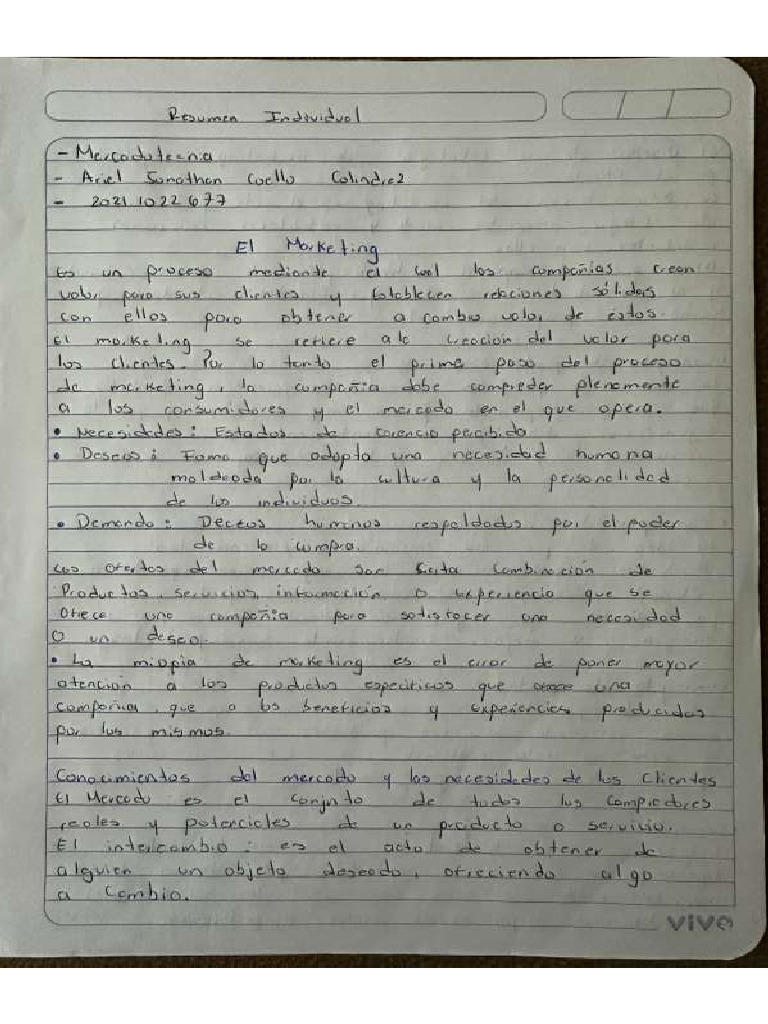 Resumen Individual
- Mercadotecnia
- Ariel Jonathan Coello Colindrez
- 20211022677
El Marketing
Es un proceso mediante el cual las compañias crean
valor para sus clientes y Establecen relaciones sólidas
con ellos para obtener a cambio valor de éstos.
El marketing se refiere a la creacion del valor para
los clientes. Por lo tanto el prime paso del proceso
de marketing, la compañia debe compreder plenamente
a los consumidores y el mercado en el que opera.
• Necesidades: Estados de carencia percibida
• Deseos: Foma que adopta una necesidad humana
moldeada por la cultura y la personalidad
de los individuos.
• Demanda: Deceos humanos respaldados por el poder
de la compra.
Las ofertas del mercado son Cierta Combinación de
Productos, servicios, información o experiencia que se
Ofrece una compañia para satisfacer una necesidad
O un deseo.
• La miopia de marketing es el error de poner mayor
atención a los productos específicos que ofrece una
compañia, que a los beneficios y experiencies producidas
por los mismos.
Conocimientos del mercado y las necesidades de los Clientes
El Mercado es el conjuto de todos los compredores
reales y potenciales de un producto o servicio.
El intercambio: es el acto de obtener de
alguien un objeto deseado, ofreciendo algo
a Cambio.
vivo